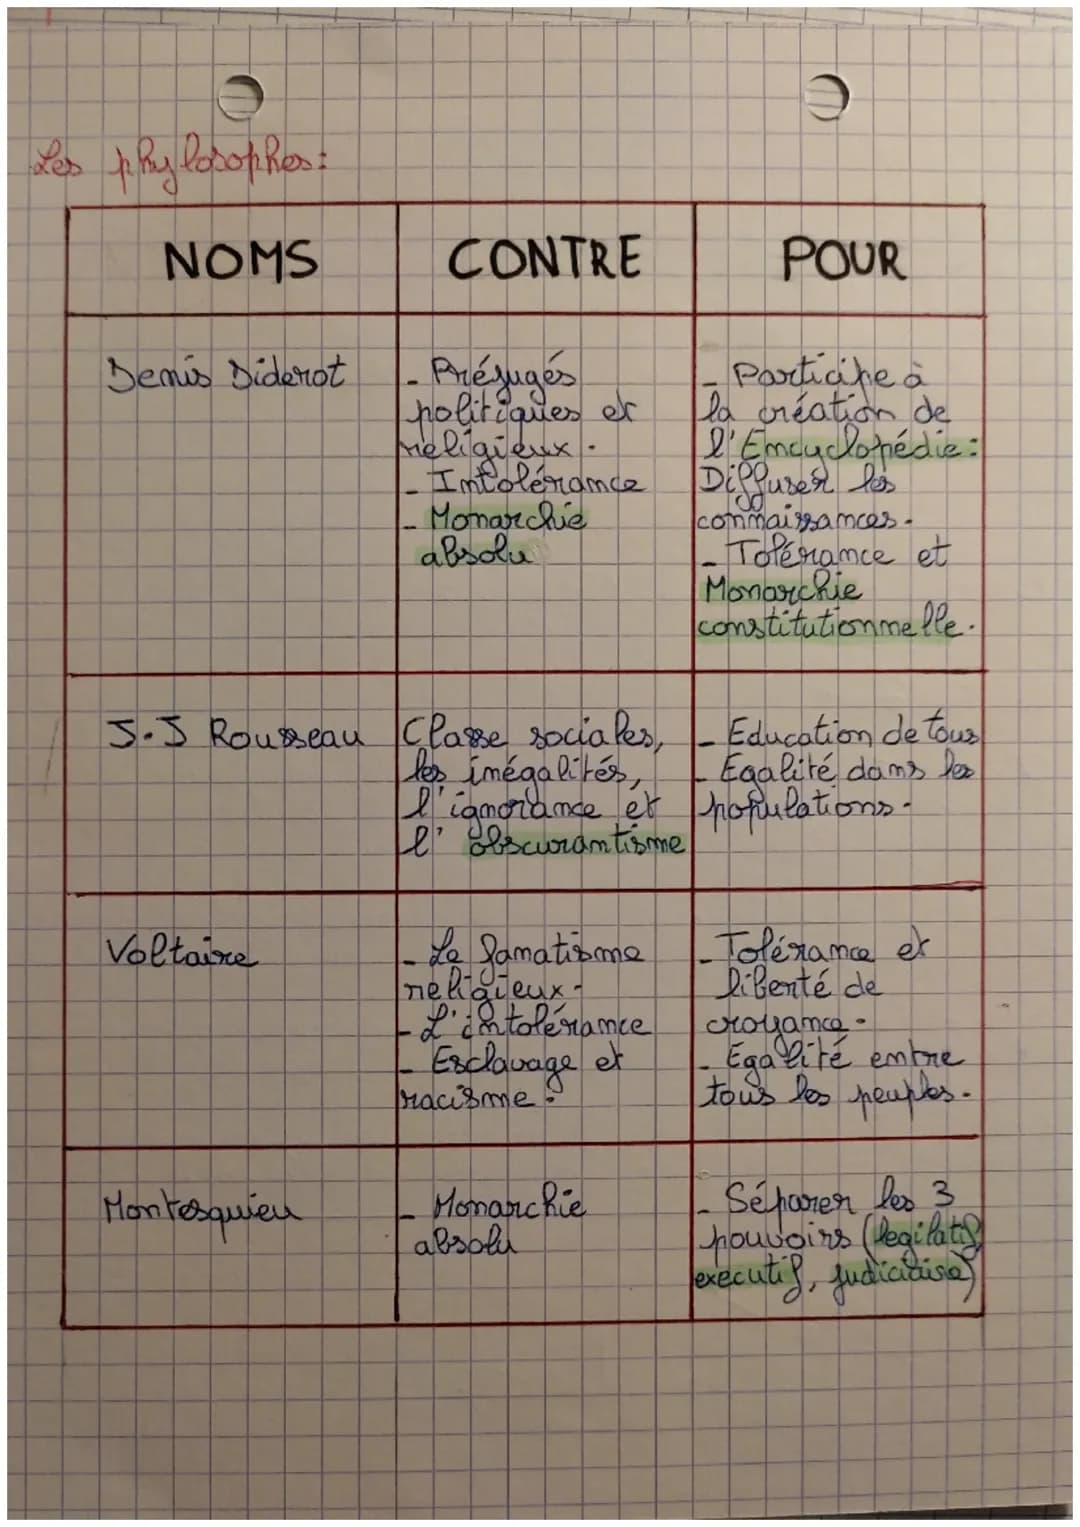 Les phylosophes:
NOMS
CONTRE
POUR
Denis Diderot
- Préjugés
politiques et
religieux.
- Intolérance
- Monarchie
absolu
- Participe à
la création de
l'Encyclopédie:
Diffuser les
connaissances.
- Tolérance et
Monarchie
constitutionnelle.
J.J Rousseau
Classe sociales,
les inégalités,
l'ignorance et
l' obscurantisme
- Education de tous
- Egalité dans les
populations.
Voltaire
- Le fanatisme
religieux.
- L'intolérance
- Esclavage et
racisme.
- Tolérance et
liberté de
croyance.
- Egalité entre
tous les peuples.
Montesquieu
- Monarchie
absolu
- Séparer les 3
pouvoirs (legilatif,
executif, judiciaire)